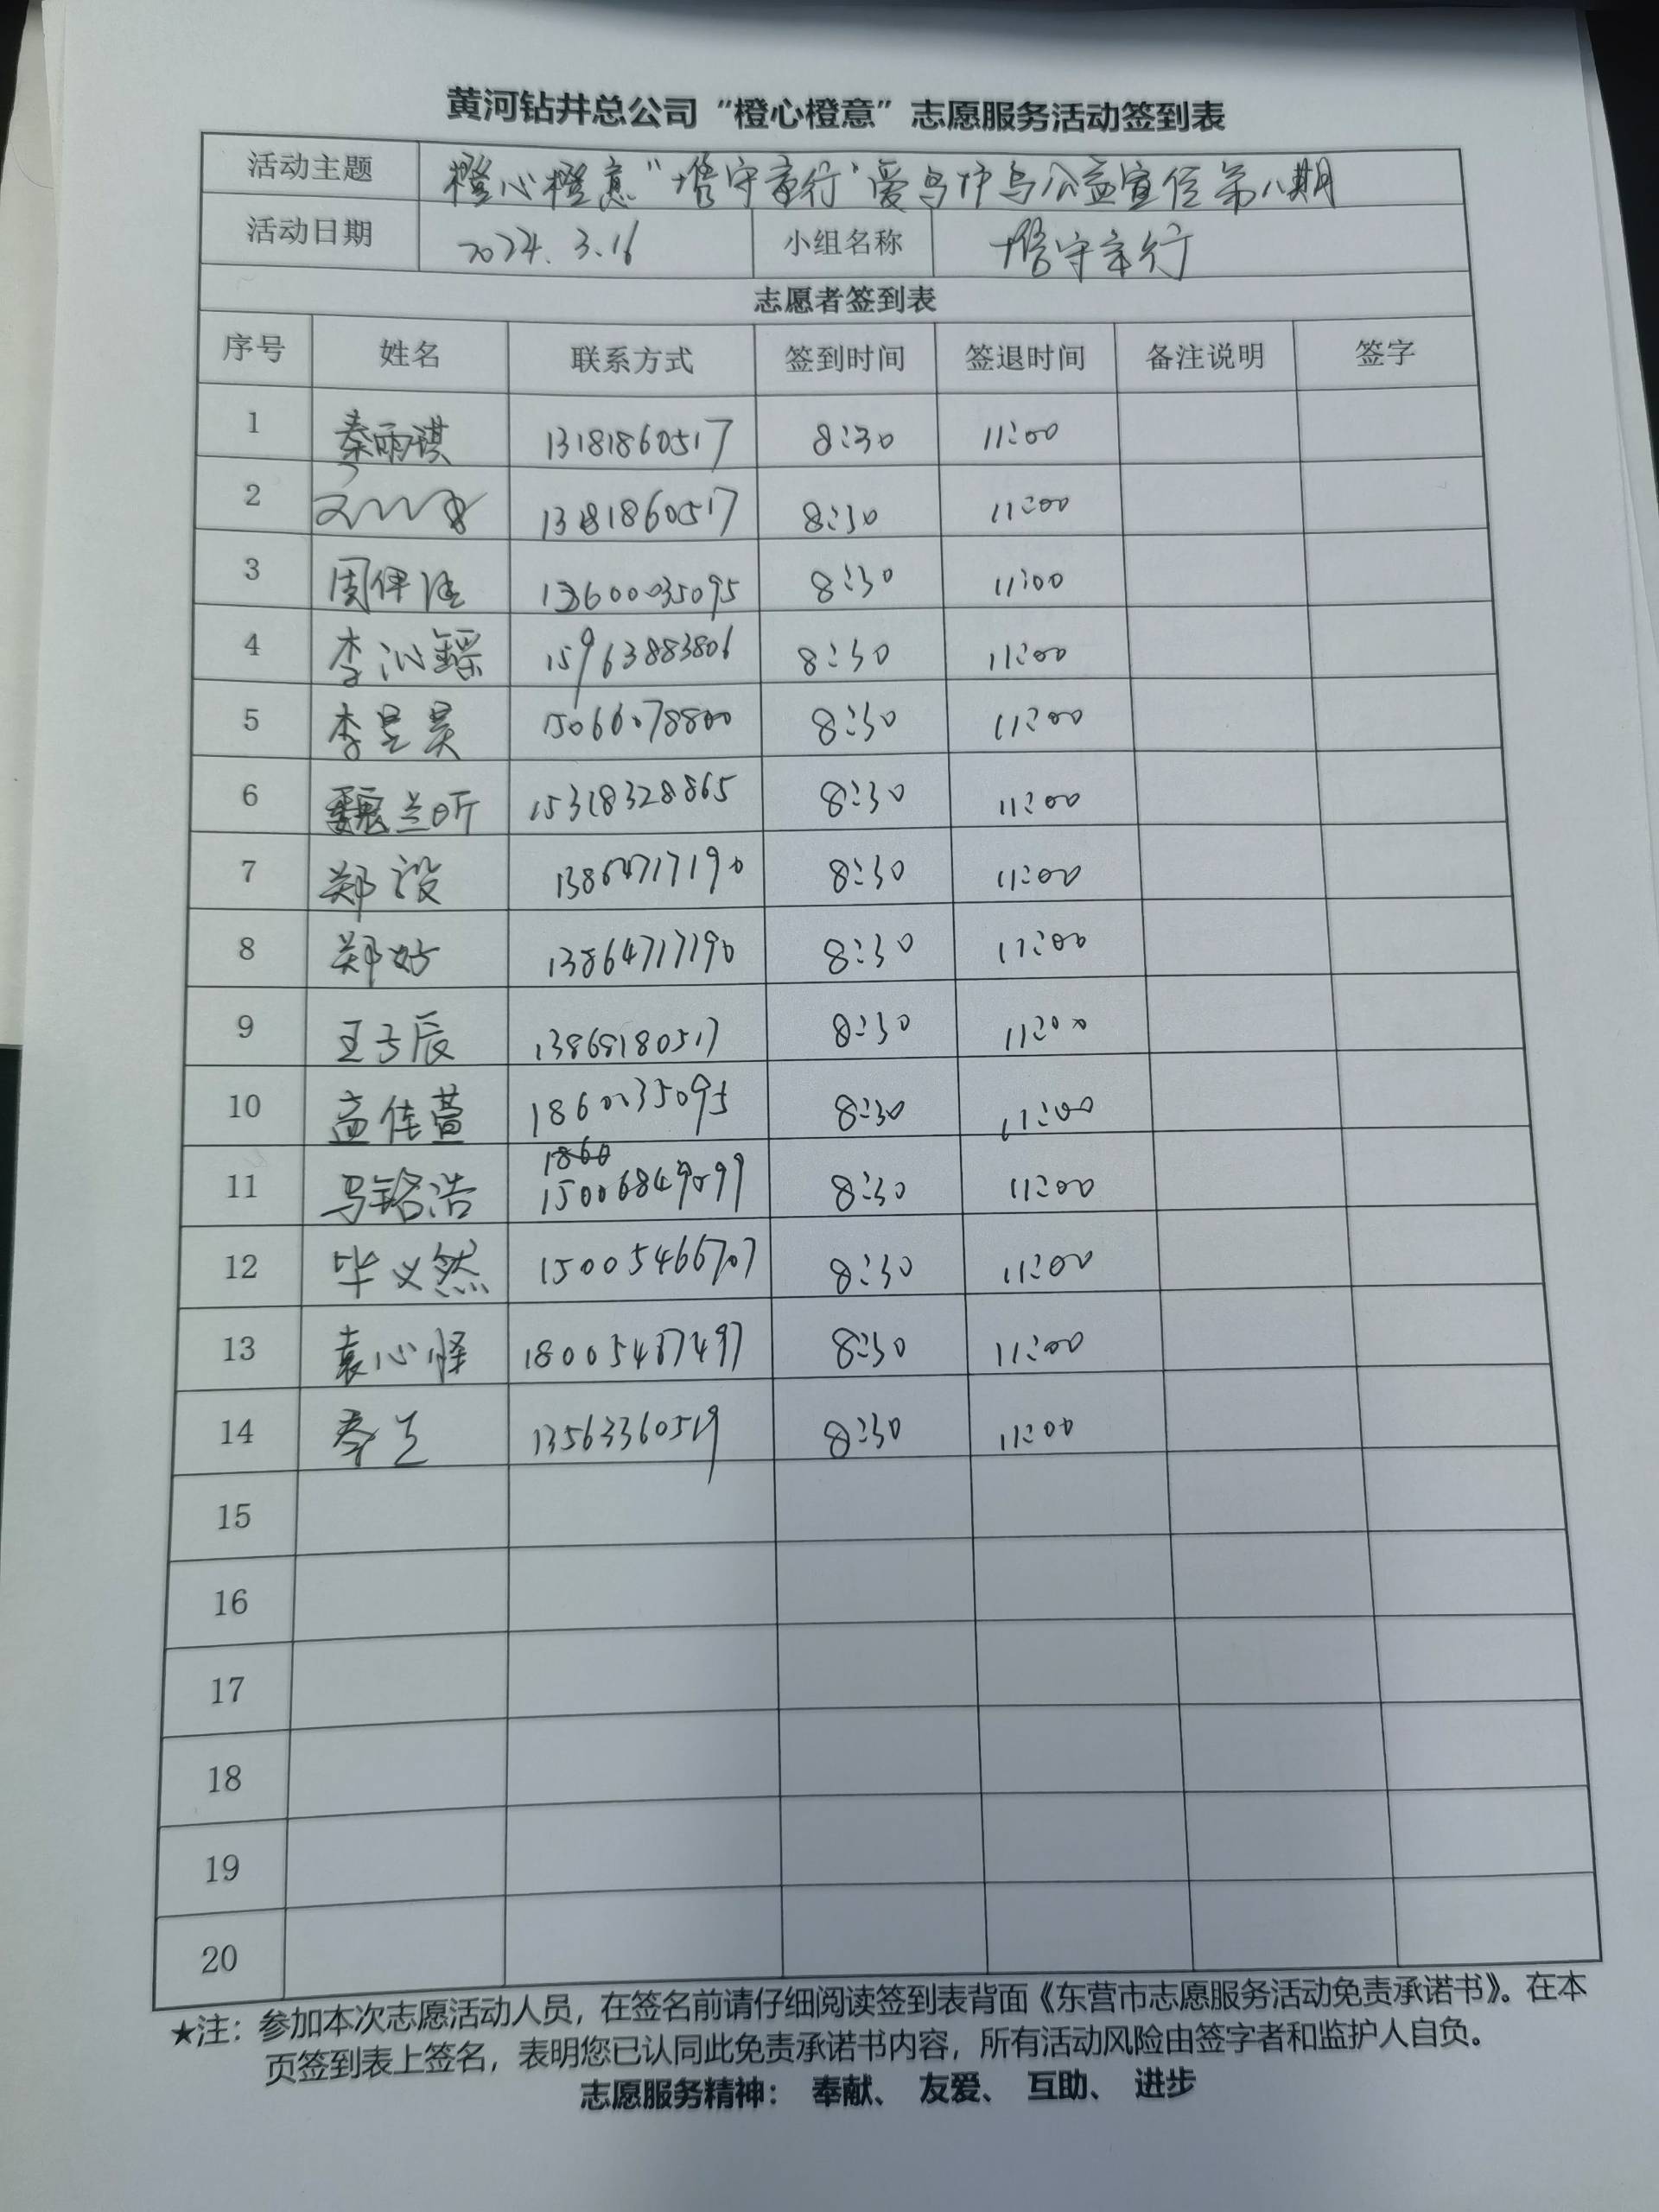 黄河钻井总公司“橙心橙意”志愿服务活动签到表
活动主题 橙心橙意“塔守章行”爱鸟护鸟公益宣传第八期
活动日期 2024.3.16 小组名称
志愿者签到表
序号 姓名 联系方式 签到时间 签退时间 备注说明 签字
1 秦雨琪 13181860517 8:30 11:00
2 13181860517 8:30 11:00
3 13600035095 8:30 11:00
4 李沁鑫 15963883806 8:30 11:00
5 李昱昊 15066078800 8:30 11:00
6 魏兰昕 15318328865 8:30 11:00
7 郑设 13864717190 8:30 11:00
8 郑好 13864717190 8:30 11:00
9 王子辰 13868180517 8:30 11:00
10 孟佳萱 18600035095 8:30 11:00
11 马铭浩 8:30 11:00
12 毕义然 15005466707 8:30 11:00
13 袁心怿 18005467497 8:30 11:00
14 13563360519 8:30 11:00
15
16
17
18
19
20
★注：参加本次志愿活动人员，在签名前请仔细阅读签到表背面《东营市志愿服务活动免责承诺书》。在本
页签到表上签名，表明您已认同此免责承诺书内容，所有活动风险由签字者和监护人自负。
志愿服务精神： 奉献、 友爱、 互助、 进步